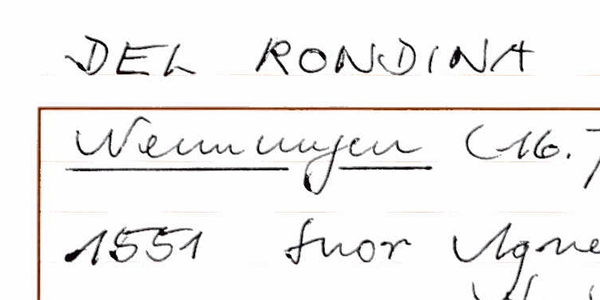 DEL RONDINA
Nennungen (16.
1551 Suor Agne